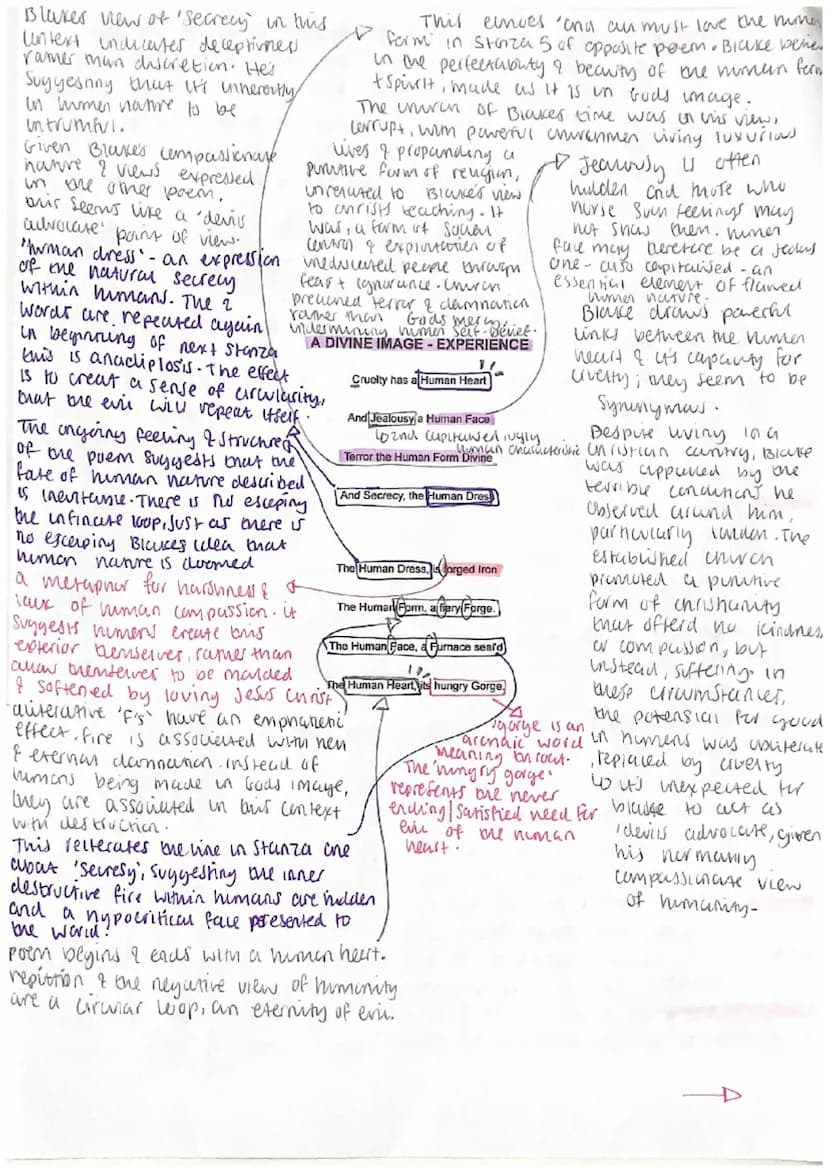 Blakes view of 'secrecy' in this
context indicates deceptiveness
rather than discretion. He's
suggesting that it's inherently
in human nature to be
untruthful.
Given Blakes compassionate
nature & views expressed
in the other poem,
this seems like a 'devils
advocate' point of view.
'human dress' - an expression
of the natural secrecy
within humans. The 2
words are repeated again
in beginning of next stanza
this is anadiplosis. The effect
is to creat a sense of circularity,
that the evil will repeat itself.
The ongoing feeling & structured
of the poem suggests that the
fate of human nature described
is inevitable. There is no escaping
the infinate loop, just as there is
no escaping Blakes idea that
human nature is doomed
a metaphor for hardness &
lack of human compassion. it
suggests humans create this
exterior themselves, rather than
allow themselves to be moulded
& softened by loving Jesus Christ.
alliterative 'F's' have an emphatic
effect. Fire is associated with hell
& eternal damnation. instead of
humans being made in Gods image,
they are associated in this context
with destruction.
This reiterates the line in stanza one
about 'Secresy', suggesting the inner
destructive fire within humans are hidden
and a hypocritical face presented to
the world.
Poem begins & ends with a human heart.
repitition & the negative view of humanity
are a circular loop, an eternity of evil.
This echoes 'and all must love the human
form' in stanza 5 of opposite poem. Blake
in the perfectability & beauty of the human form
+ spirit, made as it is in Gods image.
The church of Blakes time was in his view,
corrupt, with powerful churchmen living luxurious
lives & propanding a
punitive form of religion,
unrelated to Blake's view
to christs teaching. It
was, a form of social
control & exploitation of
uneducated people through
fear & ignorance. Church
preached terror & damnation
rather than Gods mercy,
undermining human self-belief.
A DIVINE IMAGE - EXPERIENCE
Cruelty has a Human Heart
And Jealousy a Human Face
2nd capitalised ugly
human characteristic
Terror the Human Form Divine
And Secrecy, the Human Dress
The Human Dress, is forged Iron
The Human Form, a fiery Forge.
The Human Face, a Furnace seal'd
The Human Heart, its hungry Gorge.
'gorge is an
archaic word
meaning throat.
The 'hungry gorge'
represents the never
ending/satisfied need for
evil of the human
heart.
Jealously is often
hidden and those who
nurse such feelings may
not show them. human
face may therefore be a
one - also capitalised - an
essential element of flawed
human nature.
Blake draws powerful
links between the human
heart & it's capacity for
cruelty; they seem to be
synonymous.
Despite living in a
christian country, Blake
was appalled by the
terrible conditions he
observed around him,
particularly london. The
established church
promoted a punitive
form of christianity
that offerd no kindness
or compassion, but
instead, suffering. in
these circumstances,
the potensial for good
in humans was obliterate
, replaced by cruelty
it's unexpected for
blake to act as
'devils advocate, given
his normally
compassionate view
of humanity-